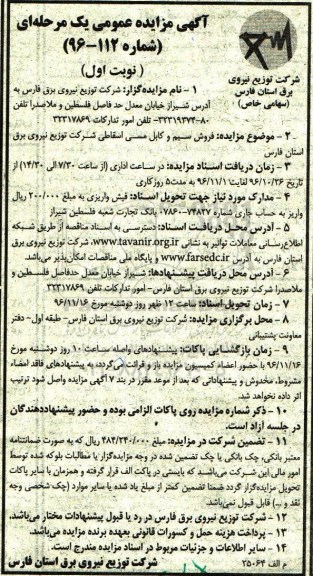 آگهی مزایده عمومی یک مرحله‌ای
(شماره ۱۱۲-۹۶)
(نوبت اول)
شرکت توزیع نیروی
برق استان فارس
(سهامی خاص)
۱ - نام مزایده‌گزار: شرکت توزیع نیروی برق فارس به
آدرس شیراز خیابان معدل حد فاصل فلسطین و ملاصدرا تلفن
۸۰-۳۲۳۱۹۳۷۴ تلفن امور تدارکات ۳۲۳۱۷۸۶۹
۲ - موضوع مزایده: فروش سیم و کابل مسی اسقاطی شرکت توزیع نیروی برق
استان فارس
۳ - زمان دریافت اسناد مزایده: در ساعات اداری (از ساعت ۷/۳۰ الی ۱۴/۳۰) از
تاریخ ۹۶/۱۰/۲۶ لغایت ۹۶/۱۱/۱ به مدت ۵ روز کاری
۴ - مدارک مورد نیاز جهت تحویل اسناد: فیش واریزی به مبلغ ۲۰۰/۰۰۰ ریال
واریز به حساب جاری شماره ۰۷۸۶۰۰۷۴۸۲۷ بانک تجارت شعبه فلسطین شیراز
۵ - آدرس محل دریافت اسناد: دسترسی به اسناد مناقصه از طریق شبکه
اطلاع‌رسانی معاملات توانیر به نشانی www.tavanir.org.ir، شرکت توزیع نیروی برق
استان فارس به آدرس www.farsedc.ir و پایگاه ملی مناقصات امکان‌پذیر می‌باشد.
۶ - آدرس محل دریافت پیشنهادها: شیراز خیابان معدل حدفاصل فلسطین و
ملاصدرا شرکت توزیع نیروی برق استان فارس- امور تدارکات تلفن ۳۲۳۱۷۸۶۹
۷ - زمان تحویل اسناد: ساعت ۱۲ ظهر روز دوشنبه مورخ ۹۶/۱۱/۱۶
۸ - محل برگزاری مزایده: شرکت توزیع نیروی برق استان فارس- طبقه اول- دفتر
معاونت پشتیبانی
۹ - زمان بازگشایی پاکات: پیشنهادهای واصله ساعت ۱۰ روز دوشنبه مورخ
۹۶/۱۱/۱۶ با حضور اعضاء کمیسیون مزایده باز و قرائت می‌گردد، به پیشنهادهای فاقد امضاء
مشروط، مخدوش و پیشنهاداتی که بعد از موعد مقرر در بند ۷ آگهی مزایده واصل شود ترتیب
اثر داده نخواهد شد.
۱۰ - ذکر شماره مزایده روی پاکات الزامی بوده و حضور پیشنهاددهندگان
در جلسه آزاد است.
۱۱ - تضمین شرکت در مزایده: مبلغ ۴۸۴/۲۴۰/۰۰۰ ریال که به صورت ضمانتنامه
معتبر بانکی، چک بانکی یا چک تضمین شده در وجه مزایده‌گزار یا مطالبات بلوکه شده توسط
امور مالی این شرکت می‌باشد که بایستی در پاکت الف قرار گرفته و همزمان با سایر پاکات
تحویل مزایده‌گزار گردد ضمنا تضمین کمتر از مبلغ یاد شده یا سایر موارد (چک شخصی وجه
نقد و ...) قابل قبول نمی‌باشد.
۱۲ - شرکت توزیع نیروی برق فارس در رد یا قبول پیشنهادات مختار می‌باشد.
۱۳ - پرداخت هزینه حمل و کسورات قانونی بعهده برنده مزایده می‌باشد.
۱۴ - سایر اطلاعات و جزئیات مربوط در اسناد مزایده مندرج است.
م الف ۲۵۰۶۴ شرکت توزیع نیروی برق استان فارس